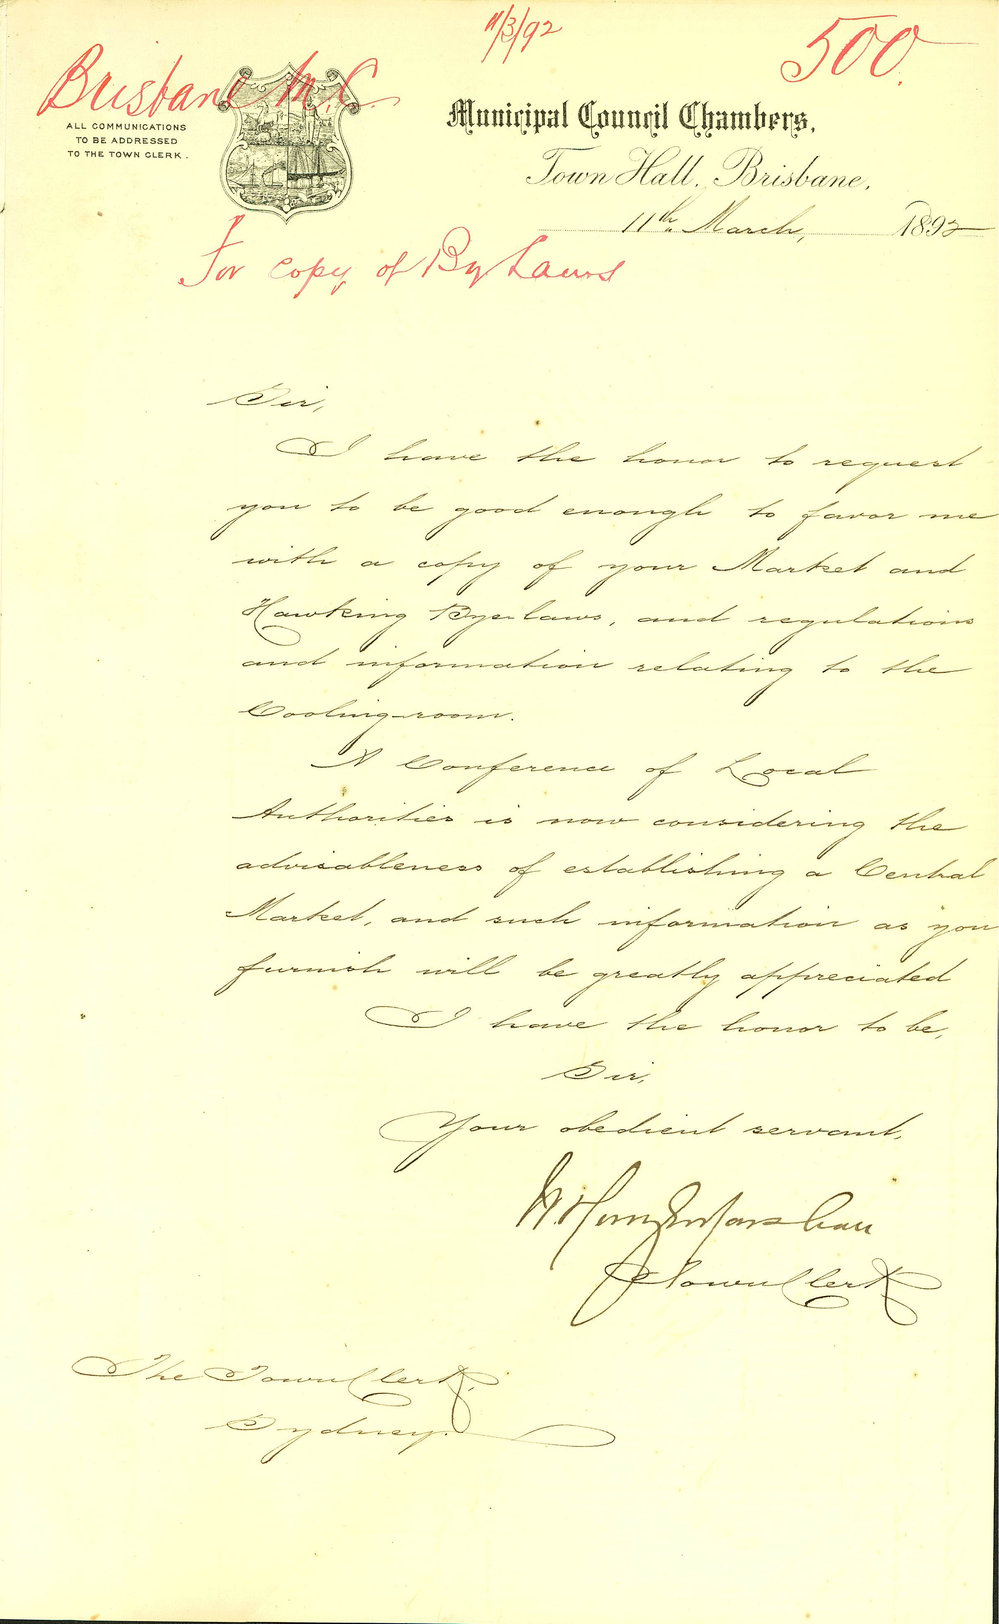 11/3/92
500.
Brisbane M.C.
ALL COMMUNICATIONS
TO BE ADDRESSED
TO THE TOWN CLERK.
Municipal Council Chambers,
Town Hall, Brisbane,
11th March, 1892
For copy of By Laws
Sir,
I have the honor to request
you to be good enough to favor me
with a copy of your Market and
Hawking Bye-laws, and regulations
and information relating to the
Cooling-room.
A Conference of Local
Authorities is now considering the
advisableness of establishing a Central
Market, and such information as you
furnish will be greatly appreciated
I have the honor to be,
Sir,
Your obedient servant,
W. Henry G. Marshall
Town Clerk
The Town Clerk,
Sydney.